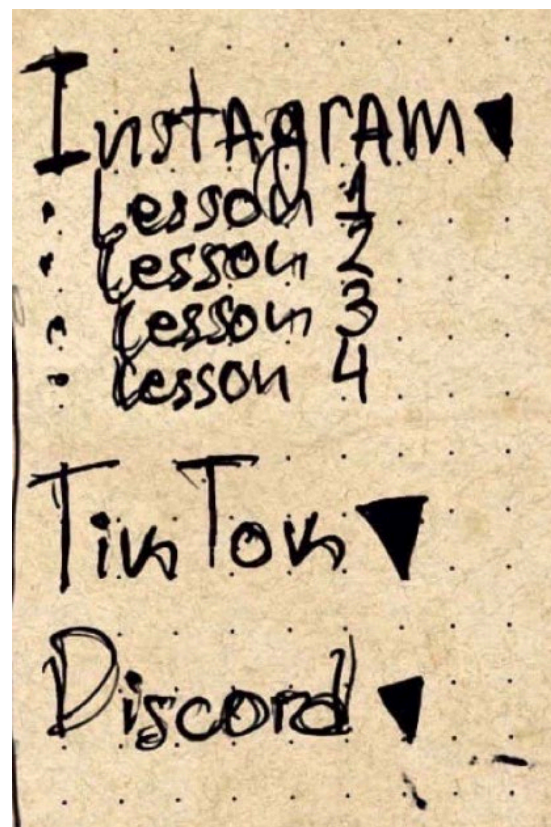 Instagram
Lesson 1
Lesson 2
Lesson 3
Lesson 4
TikTok
Discord